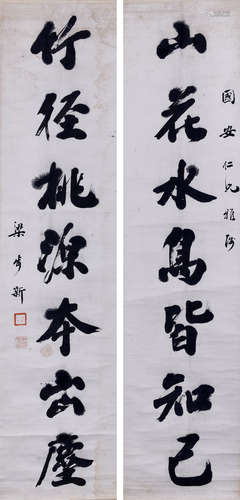 國安仁兄雅属
山花水鳥皆知己
竹徑桃源本出塵
梁步新